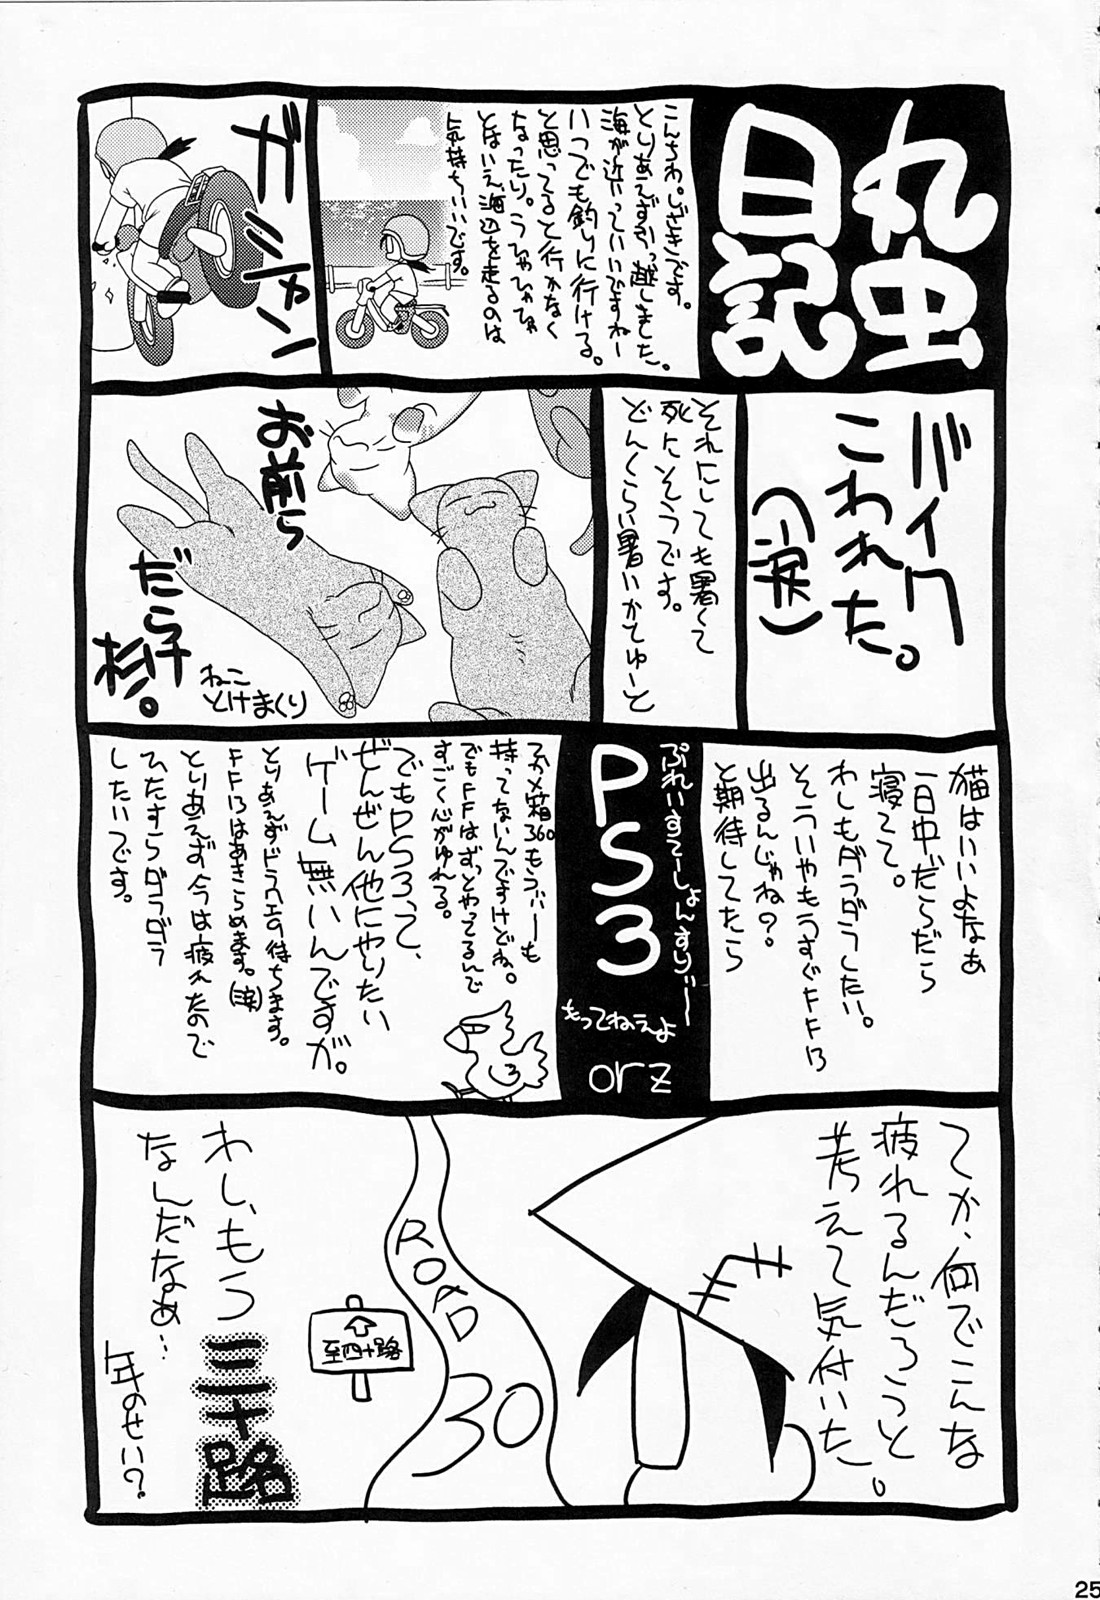 丸虫
日記
こんちわ。じざきです。
とりあえずひっ越しました。
海が近っていいですねー
いつでも釣りに行ける。
と思ってると行かなく
なったり。うひゃひゃひゃ
とはいえ海辺を走るのは
気持ちいいです。
ガシャン
バイク
こわれた。
(泣)
それにしても暑くて
死にそうです。
どんくらい暑いかてゅーと
お前ら
だら子
杉。
ねこ
とけまくり
猫はいいよなぁ
一日中だらだら
寝てて。
わしもダラダラしたい。
そういやもうすぐFF13
出るんじゃね?
と期待してたら
ぷれいすてーしょんすりぃー
PS3
もってねぇよ
orz
てか×箱360もうぃーも
持ってないんですけどね。
でもFFはずっとやってるんで
すごく心がゆれる。
でもPS3って、
ぜんぜん他にやりたい
ゲーム無いんですが。
とりあえずドラクエの待ちます。
FF13はあきらめます。(涙)
とりあえず今は疲れたので
ひたすらダラダラ
したいです。
3
てか、何でこんな
疲れるんだろうと
考えて気付いた。
ROAD
30
至四十路
わし、もう
三十路
なんだなぁ…
年のせい?
25